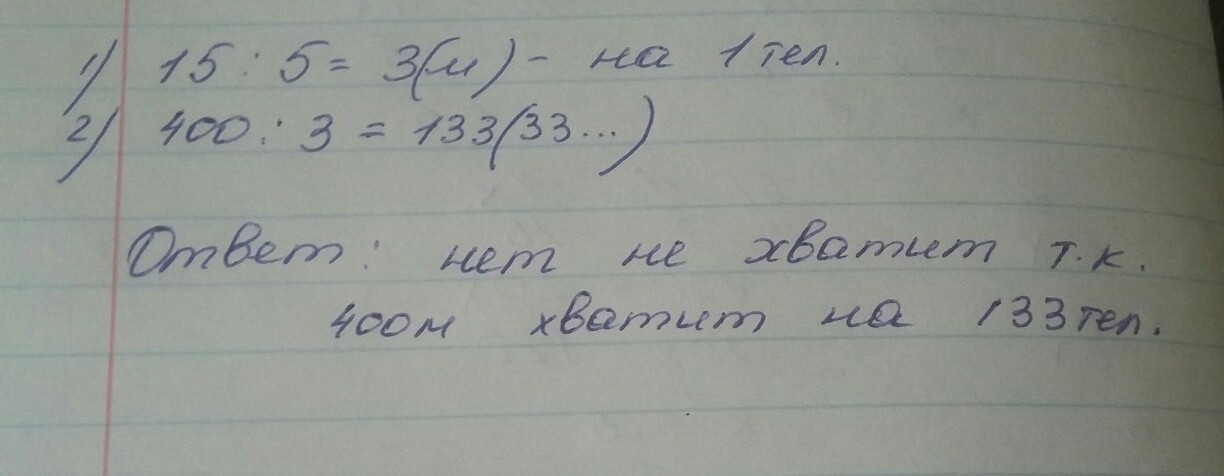 1) 15 : 5 = 3(м) - на 1 тел.
2) 400 : 3 = 133(33...)
Ответ: нет не хватит т.к.
400м хватит на 133 тел.